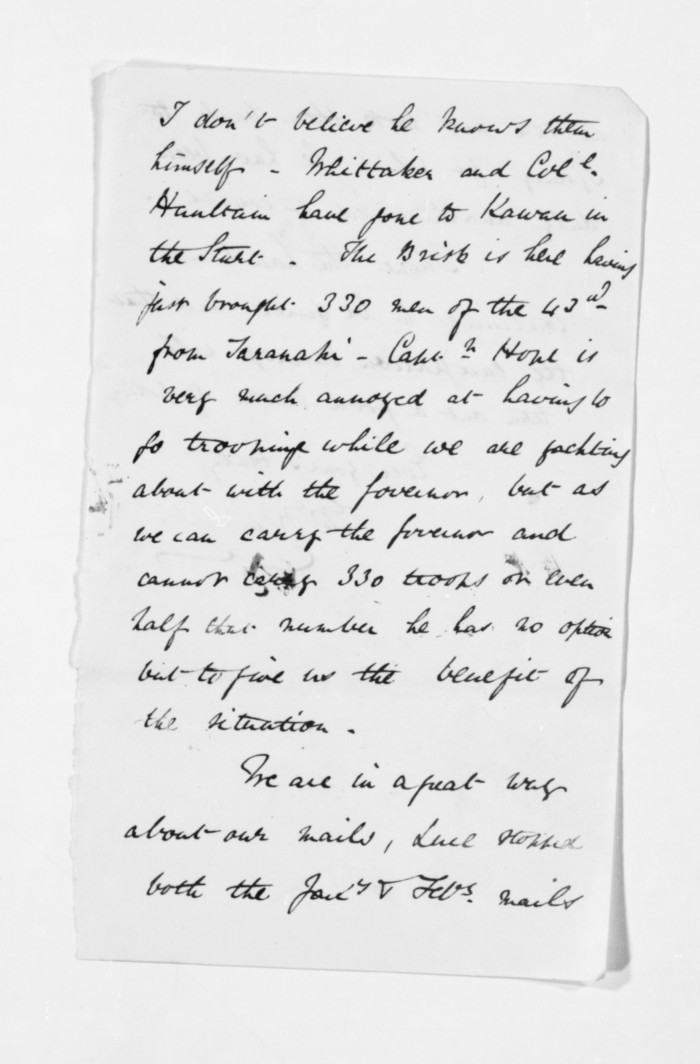 I don't believe he knows them
himself - Whittaker and Col l.
Haultain have gone to Kawau in
the Sturt - The Brisk is here having
just brought 330 men of the 43 d
from Taranaki - Capt n Hope is
very much annoyed at having to
go trooping while we are yachting
about with the Governor, but as
we can carry the Governor and
cannot carry 330 troops or even
half that number he has no option
but to give us the benefit of
the situation -
We are in a great way
about our mails, Luce stopped
both the Jan y & Feb y. mails